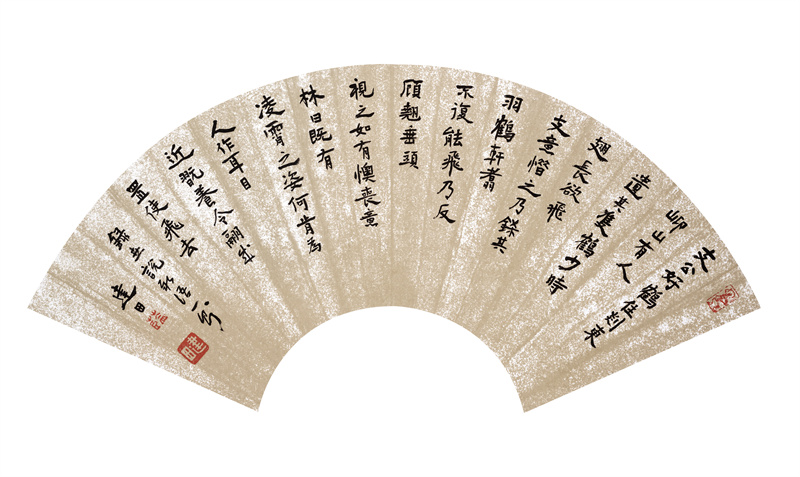 支公好鶴住剡東
岇山有人
遺其雙鶴少時
翅長欲飛
支意惜之乃鎩其
羽鶴軒翥
不復能飛乃反
顧翅垂頭
視之如有懊喪意
林曰既有
凌霄之姿何肯為
人作耳目
近翫養令翮成
置使飛去
錄世說新語一則